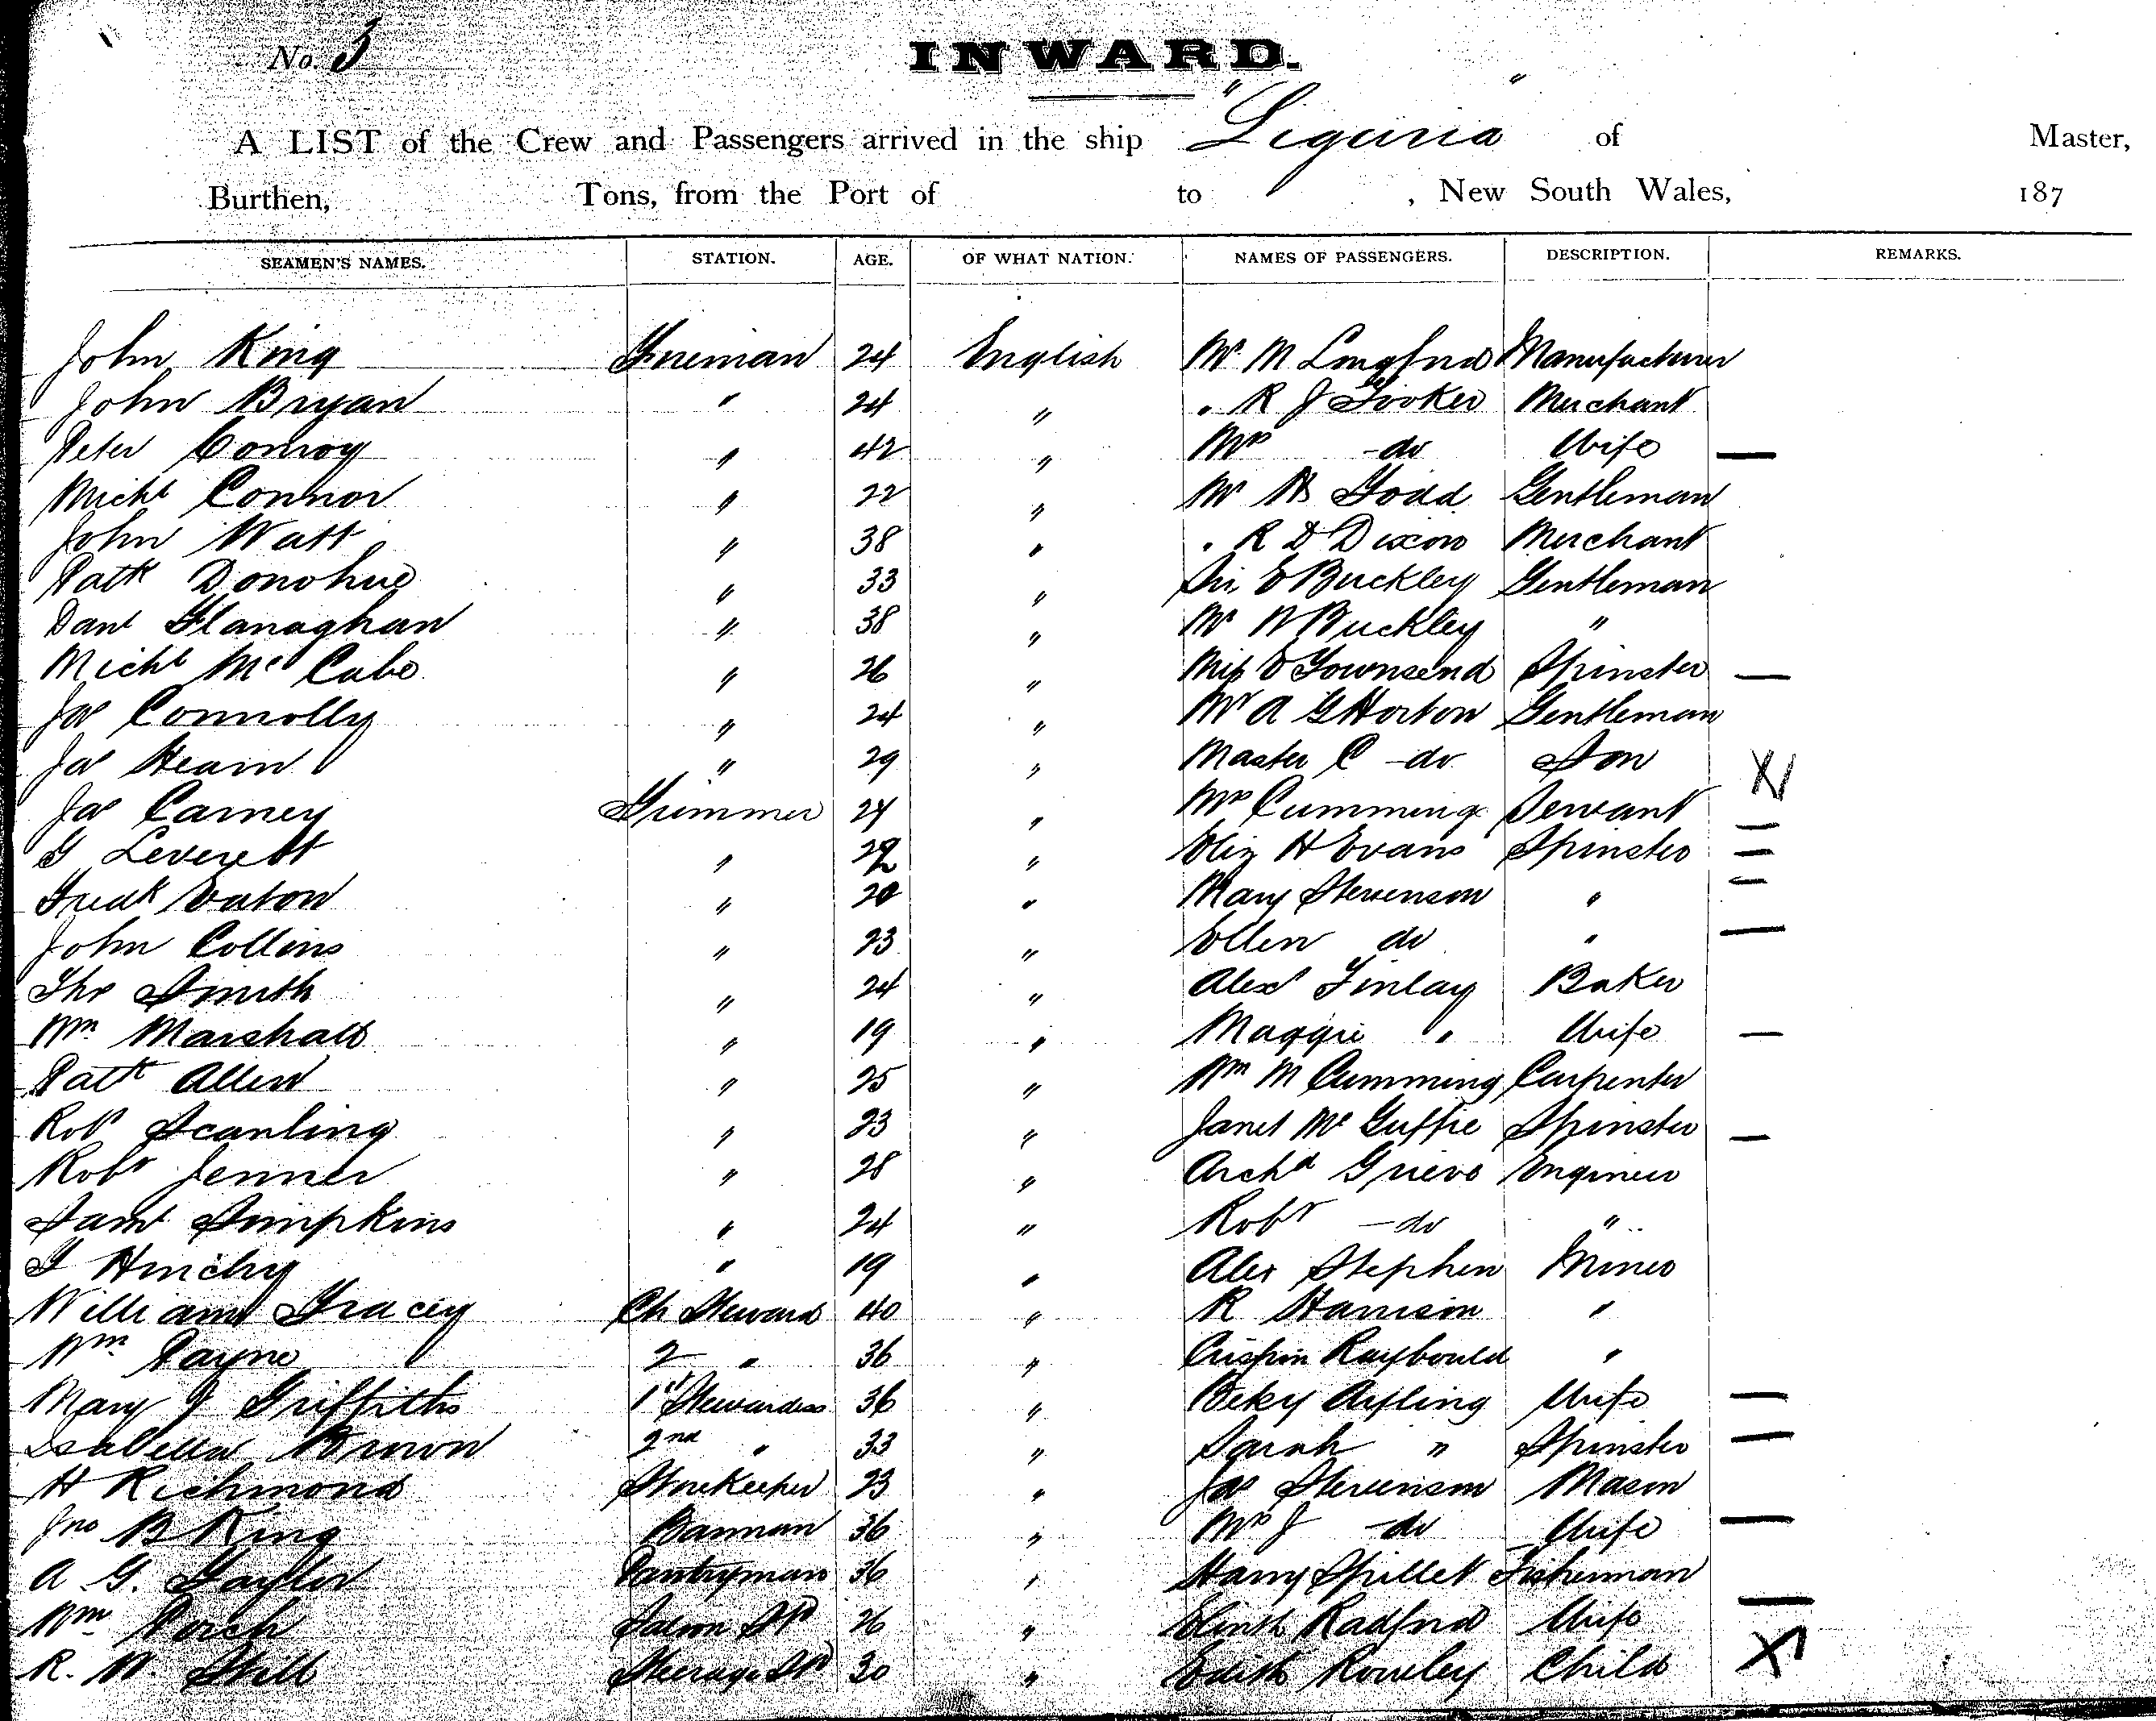 No. 3
INWARD.
A LIST of the Crew and Passengers arrived in the ship "Liguria" of Master,
Burthen, Tons, from the Port of to , New South Wales, 187
SEAMEN'S NAMES. STATION. AGE. OF WHAT NATION. NAMES OF PASSENGERS. DESCRIPTION. REMARKS.
John King Fireman 24 English Mr M Longford Manufacturer
John Bryan " 24 " " R J Merchant
Peter Conroy " 42 " Mrs -do Wife —
Michl Connor " 22 " Mr Todd Gentleman
John Watt " 38 " " R D Dixon Merchant
Patk Donohue " 33 " Sir E Buckley Gentleman
Danl Flanaghan " 38 " Mr Buckley "
Michl McCabe " 26 " Miss E Townsend Spinster —
Jas Connolly " 24 " Mr A G Horton Gentleman
Jas Hearn " 29 " Master C -do Son X
Jas Carney Trimmer 24 " Mrs Cumming Servant —
G Leverett " 22 " Eliz H Evans Spinster —
Fredk Eaton " 20 " Mary Stevenson " —
John Collins " 23 " Ellen do " —
Thos Smith " 24 " Alexr Finlay Baker
Wm Marshall " 19 " Maggie " Wife —
Patk Allen " 25 " Wm M Cumming Carpenter
Robt Scanling " 23 " Janet McGuffie Spinster —
Robt Jenner " 28 " Archd Grieve Engineer
Saml Simpkins " 24 " Robt -do "
Hinchy " 19 " Alex Stephen Miner
William Tracey Ch Steward 40 " R Harrison "
Wm Payne 2 " 36 " Crispin Raybould "
Mary J Griffiths 1st Stewardess 36 " Beky Wife —
Isabella Brown 2nd " 33 " Sarah " Spinster —
H Richmond Storekeeper 23 " Jas Stevenson Mason
Jno B King Barman 36 " Mrs J -do Wife —
A G. Pantryman 36 " Harry Spillet Fisherman
Wm Porch Saloon Std 26 " Radford Wife —
R. W. Still Steerage Std 30 " Edith Rowley Child X